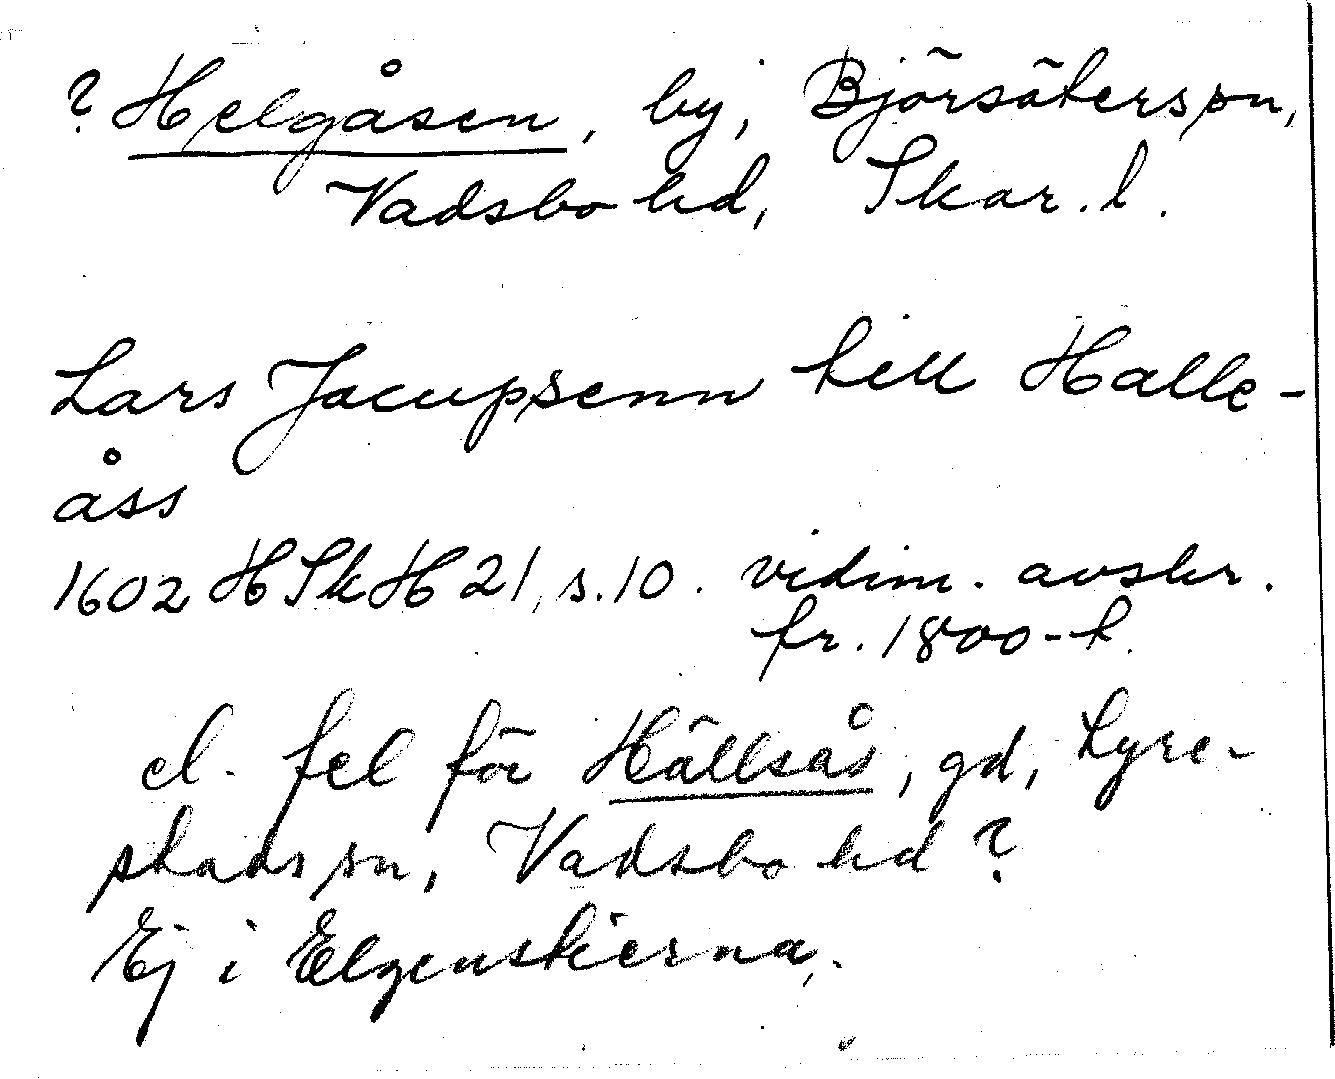 ? Helgåsen, by, Björsäters sn,
Vadsbo hd, Skar. l.
Lars Jacupsenn till Halle-
åss
1602 HSkH 21, s. 10. vidim. avskr.
fr. 1800-t.
el. fel för Hällsås, gd, Lyre-
stads sn, Vadsbo hd?
Ej i Elgenstierna.